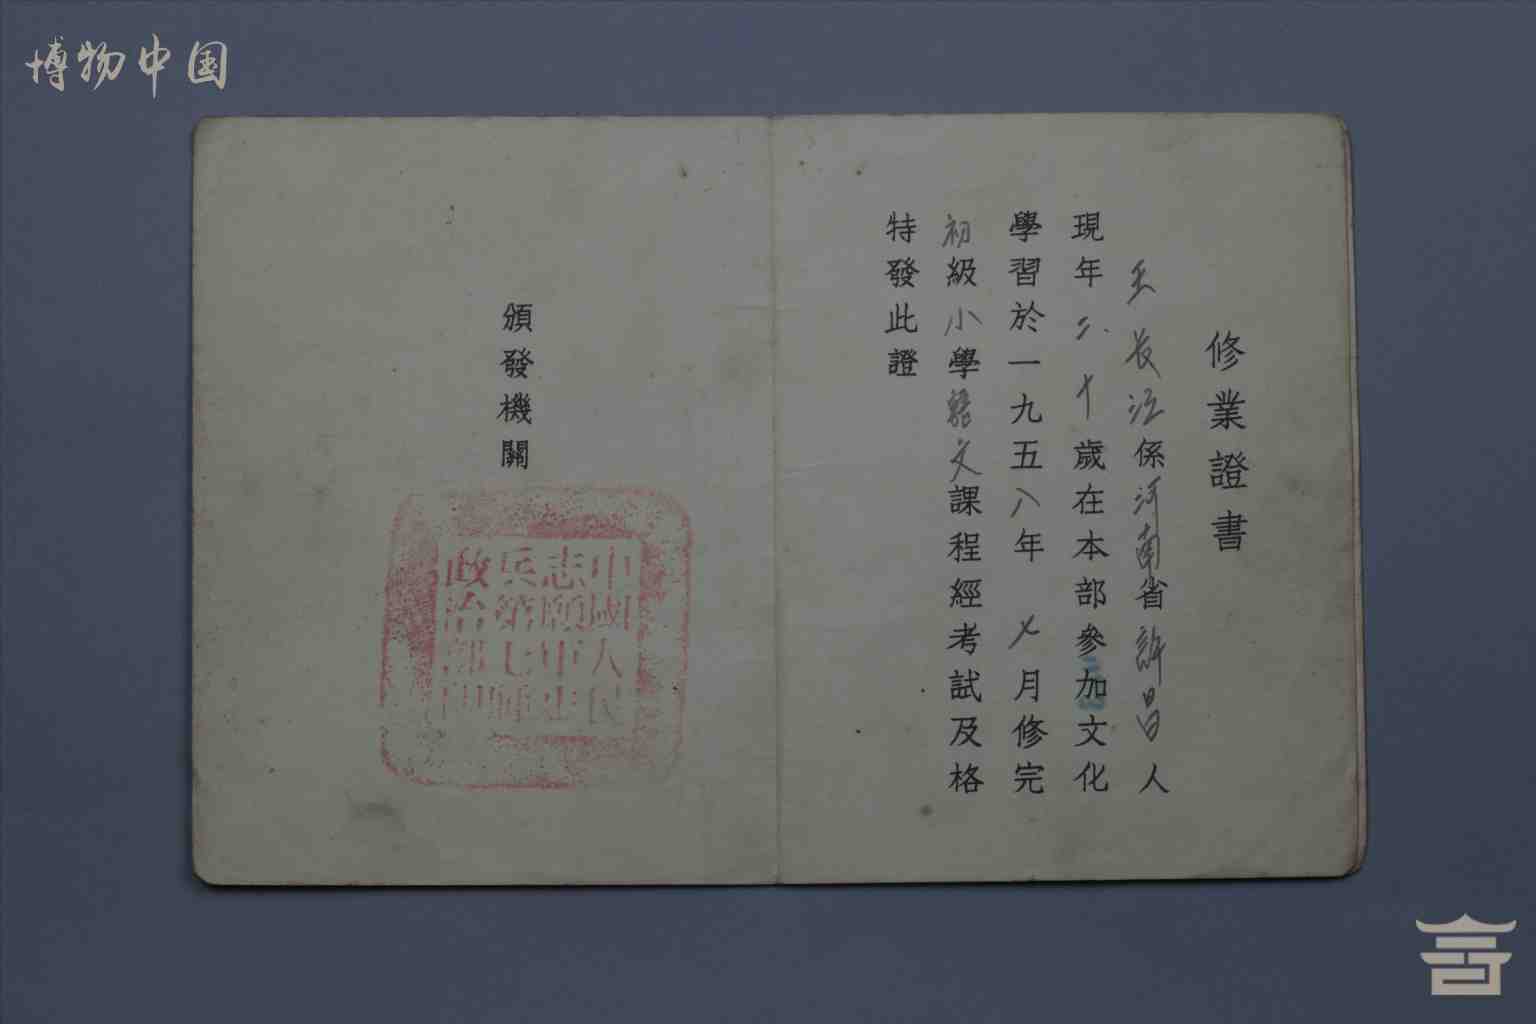 博物中国
修業證書
王長江係河南省許昌人
現年二十歲在本部參加文化
學習於一九五八年七月修完
初級小學語文課程經考試及格
特發此證
頒發機關
中國人民
志願軍步
兵第七師
政治部印